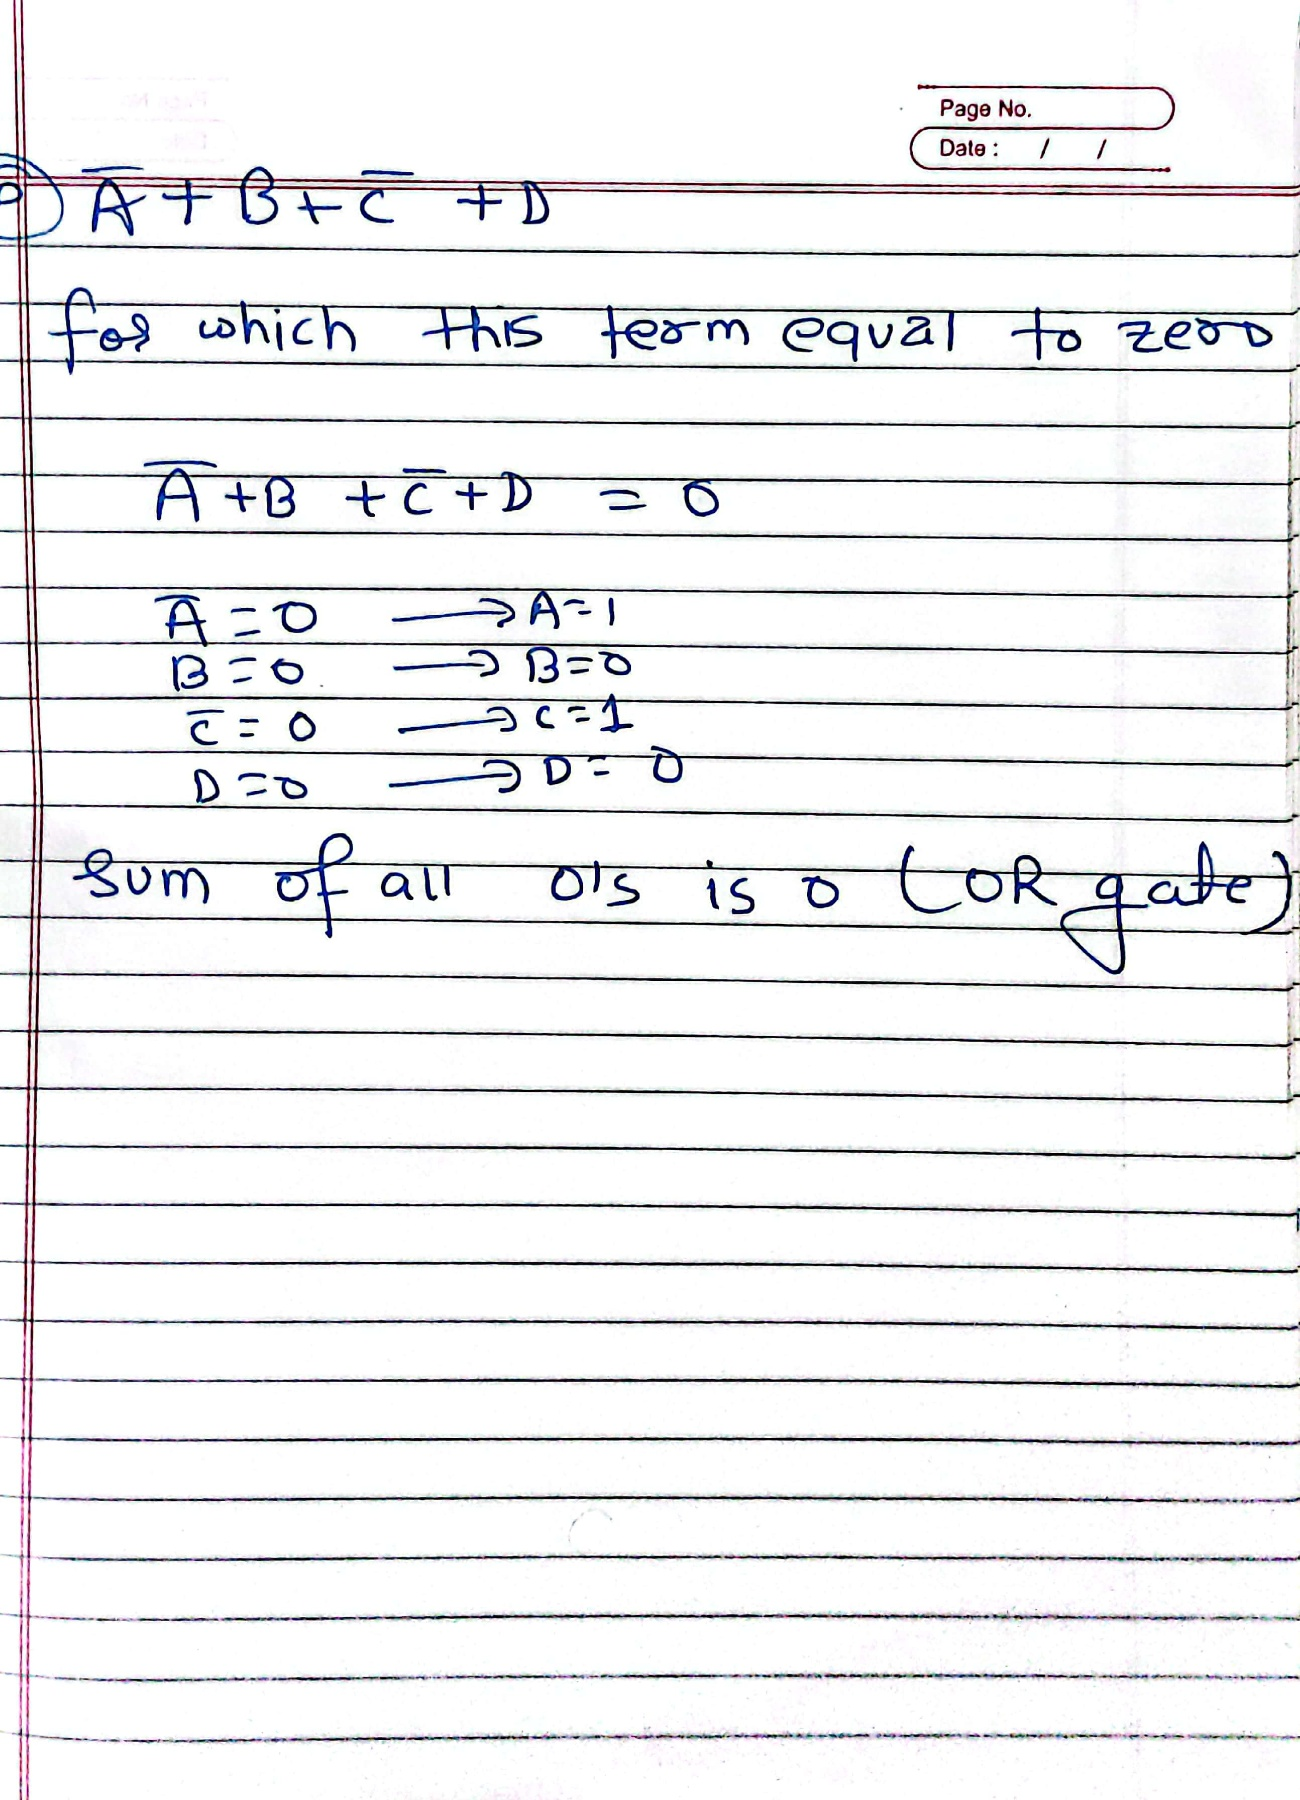 Page No.
Date : / /
A̅ + B + C̅ + D
for which this term equal to zero
A̅ + B + C̅ + D = 0
A̅ = 0 → A = 1
B = 0 → B = 0
C̅ = 0 → C = 1
D = 0 → D = 0
Sum of all 0's is 0 (OR gate)